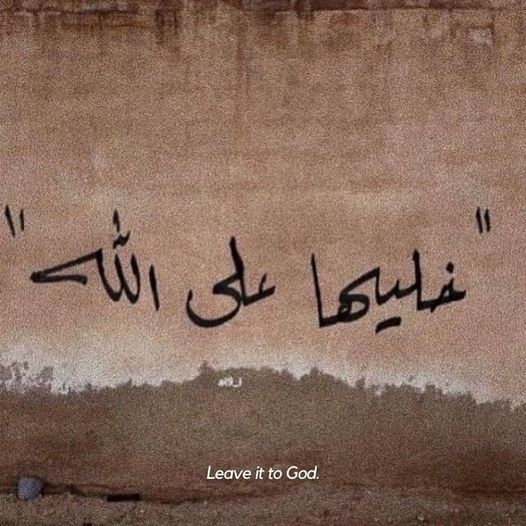 "خليها على الله"
Leave it to God.